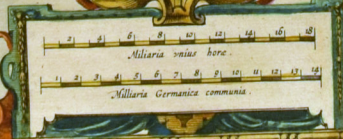 2 4 6 8 10 12 14 16 18
Miliaria vnius horæ.
1 2 3 4 5 6 7 8 9 10 11 12 13 14
Milliaria Germanica communia.